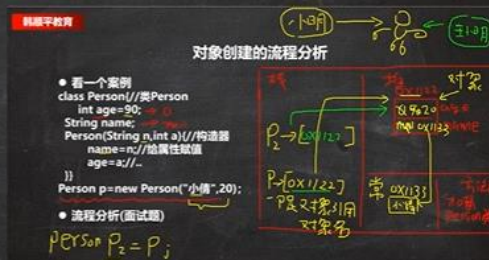 韩顺平教育
小明
王小明
对象创建的流程分析
● 看一个案例
class Person{//类Person
int age=90; → 0
String name; → null
Person(String n,int a){//构造器
name=n;//给属性赋值
age=a;//..
}}
Person p=new Person("小倩",20);
● 流程分析(面试题)
Person P2=P;
P2→[0x1122]
P→[0x1122]
-P是对象引用
对象名
0x1122
null 0x1133
常 0x1133